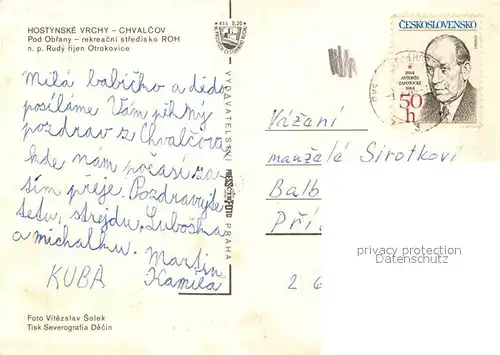 HOSTÝNSKÉ VRCHY - CHVALČOV
Pod Obřany - rekreační středisko ROH
n. p. Rudý říjen Otrokovice
Kčs 0,20
Milá babičko a dědo
posíláme Vám pěkný
pozdrav z Chvalčova
kde nám počasí za-
tím přeje. Pozdravujte
tetu, strejdu, Luboška
a michalku. Martin
Kamila
KUBA
Foto Vítězslav Šolek
Tisk Severografia Děčín
VYDAVATELSTVÍ PRESSFOTO PRAHA
ČESKOSLOVENSKO
1884
ANTONÍN
ZÁPOTOCKÝ
1984
50
h
Vážení
manželé Sirotkovi
Balb
Pří
2 6
privacy protection
Datenschutz